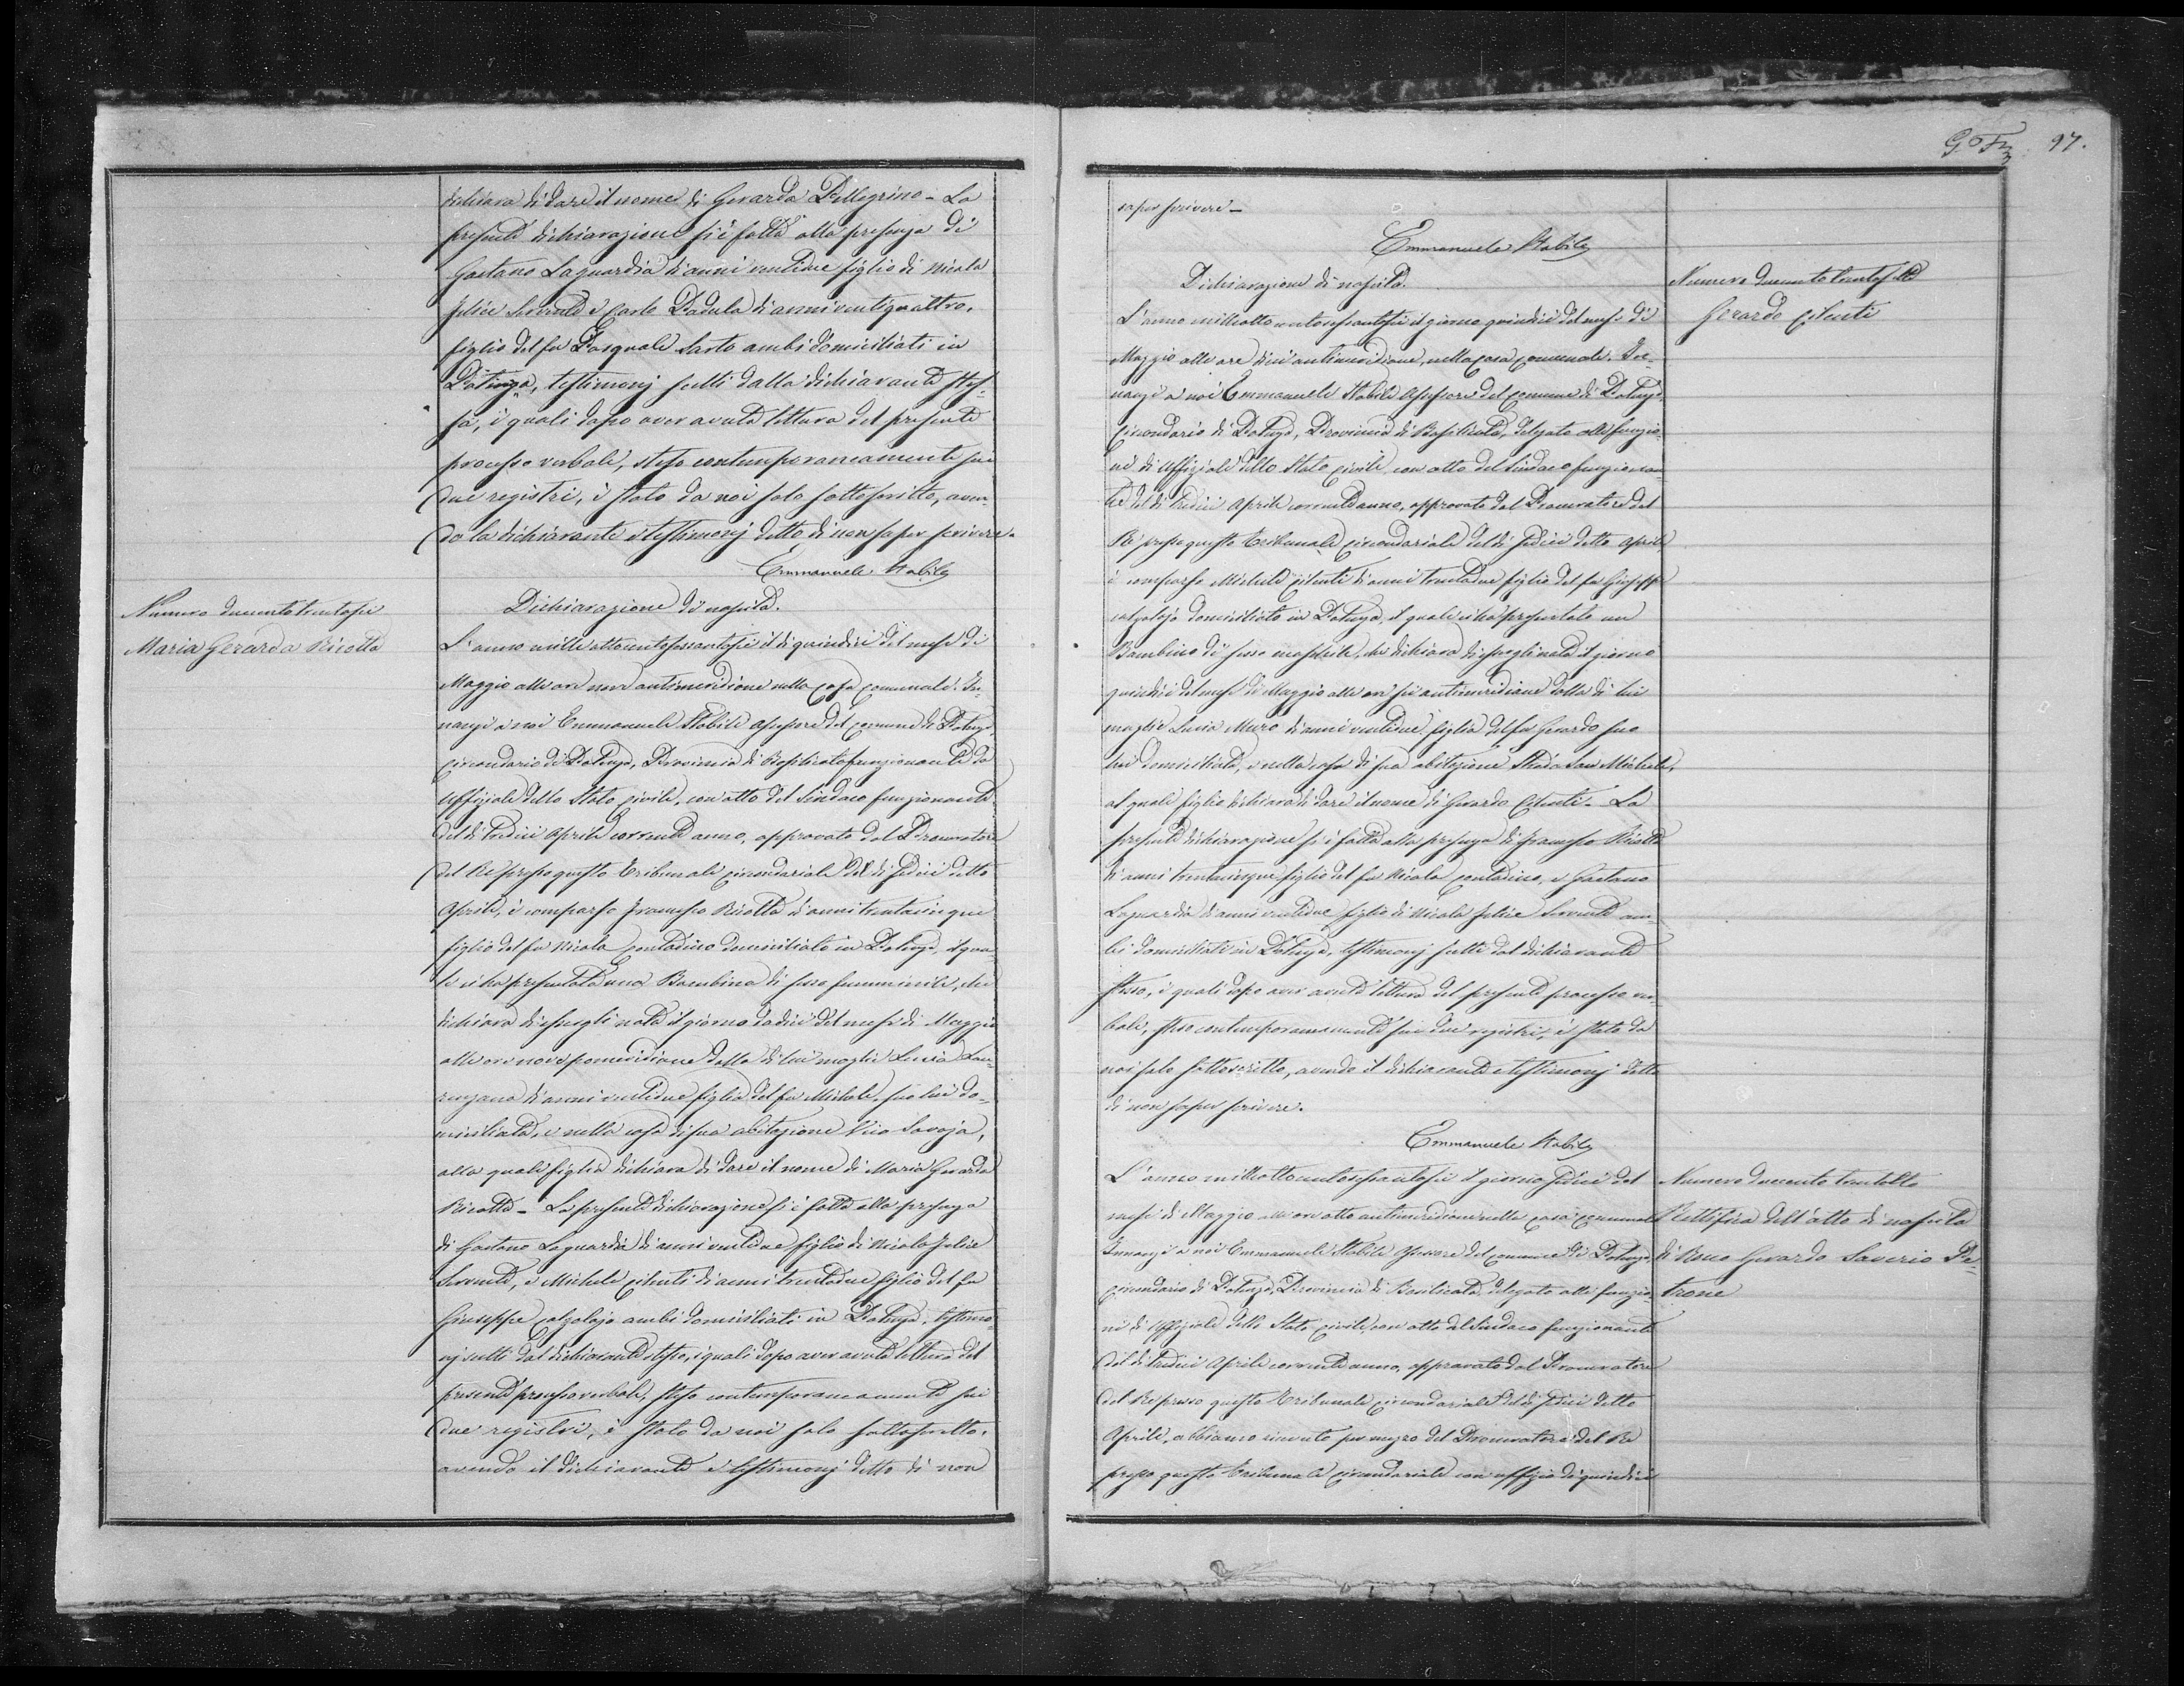 dichiara di dare il nome di Gerarda Pellegrino - La
presente dichiarazione si è fatta alla presenza di
Gaetano Laguardia di anni ventidue figlio di Nicola
Felice Servente e Carlo Padula di anni ventiquattro,
figlio del fu Pasquale Sarto ambi domiciliati in
Potenza, testimonj scelti dalla dichiarante stes-
sa, i quali dopo aver avuta lettura del presente
processo verbale, steso contemporaneamente sui
due registri, è stato da noi solo sottoscritto, aven-
do la dichiarante e testimonj detto di non saper scrivere.
Emmanuele Stabile
Numero duecento trentasei
Maria Gerarda Ricotta
Dichiarazione di nascita.
L'anno mille ottocentosessantasei il dì quindici del mese di
Maggio alle ore nove antimeridiane nella casa comunale. In-
nanzi a noi Emmanuele Stabile assessore del comune di Potenza,
circondario di Potenza, Provincia di Basilicata funzionante da
Uffiziale dello Stato civile, con atto del Sindaco funzionante
del dì tredici Aprile corrente anno, approvato dal Procuratore
del Re presso questo Tribunale circondariale del dì sedici detto
Aprile, è comparso Francesco Ricotta di anni trentacinque
figlio del fu Nicola contadino domiciliato in Potenza, il qua-
le ci ha presentata una Bambina di sesso femminile, che
dichiara essergli nata il giorno dodici del mese di Maggio
alle ore nove pomeridiane dalla di lui moglie Lucia Lau-
renzana di anni ventidue figlia del fu Michele, seco lui do-
miciliata, e nella casa di sua abitazione Vico Savoja,
alla quale figlia dichiara di dare il nome di Maria Gerarda
Ricotta - La presente dichiarazione si è fatta alla presenza
di Gaetano Laguardia di anni ventidue figlio di Nicola Felice
Servente, e Michele Cilenti di anni trentadue figlio del fu
Giuseppe calzolajo ambi domiciliati in Potenza, testimo-
nj scelti dal dichiarante stesso, i quali dopo aver avuta lettura del
presente processo verbale, steso contemporaneamente sui
due registri, è stato da noi solo sottoscritto,
avendo il dichiarante e testimonj detto di non
97.
saper scrivere -
Emmanuele Stabile
Numero duecento trentasette
Gerardo Cilenti
Dichiarazione di nascita.
L'anno mille ottocentosessantasei il giorno quindici del mese di
Maggio alle ore dieci antimeridiane, nella casa comunale. In-
nanzi a noi Emmanuele Stabile Assessore del comune di Potenza
circondario di Potenza, Provincia di Basilicata, delegato alle funzio-
ni di Uffiziale dello Stato civile con atto del Sindaco funzionan-
te del dì tredici Aprile corrente anno, approvato dal Procuratore del
Re presso questo Tribunale circondariale del dì sedici detto Aprile
è comparso Michele Cilenti di anni trentadue figlio del fu Giuseppe
calzolajo domiciliato in Potenza, il quale ci ha presentato un
Bambino di sesso maschile, che dichiara essergli nato il giorno
quindici del mese di Maggio alle ore sei antimeridiane dalla di lui
moglie Lucia Muro di anni ventidue figlia del fu Gerardo seco
lui domiciliata, e nella casa di sua abitazione Strada San Michele,
al quale figlio dichiara di dare il nome di Gerardo Cilenti - La
presente dichiarazione si è fatta alla presenza di Francesco Ricotta
di anni trentacinque figlio del fu Nicola contadino, e Gaetano
Laguardia di anni ventidue figlio di Nicola Felice Servente am-
bi domiciliati in Potenza, testimonj scelti dal dichiarante
stesso, i quali dopo aver avuta lettura del presente processo ver-
bale, steso contemporaneamente sui due registri, è stato da
noi solo sottoscritto, avendo il dichiarante e testimonj detto
di non saper scrivere.
Emmanuele Stabile
Numero duecento trentotto
Rettifica dell'atto di nascita
di Rocco Gerardo Saverio Pe-
trone
L'anno mille ottocentosessantasei il giorno sedici del
mese di Maggio alle ore otto antimeridiane nella casa comunale
Innanzi a noi Emmanuele Stabile Assessore del comune di Potenza,
circondario di Potenza, Provincia di Basilicata, delegato alle funzio-
ni di Uffiziale dello Stato civile, con atto del Sindaco funzionante
del dì tredici Aprile corrente anno, approvato dal Procuratore
del Re presso questo Tribunale circondariale del dì sedici detto
Aprile, abbiamo ricevuto per mezzo del Procuratore del Re
presso questo Tribunale circondariale con uffizio di quindici